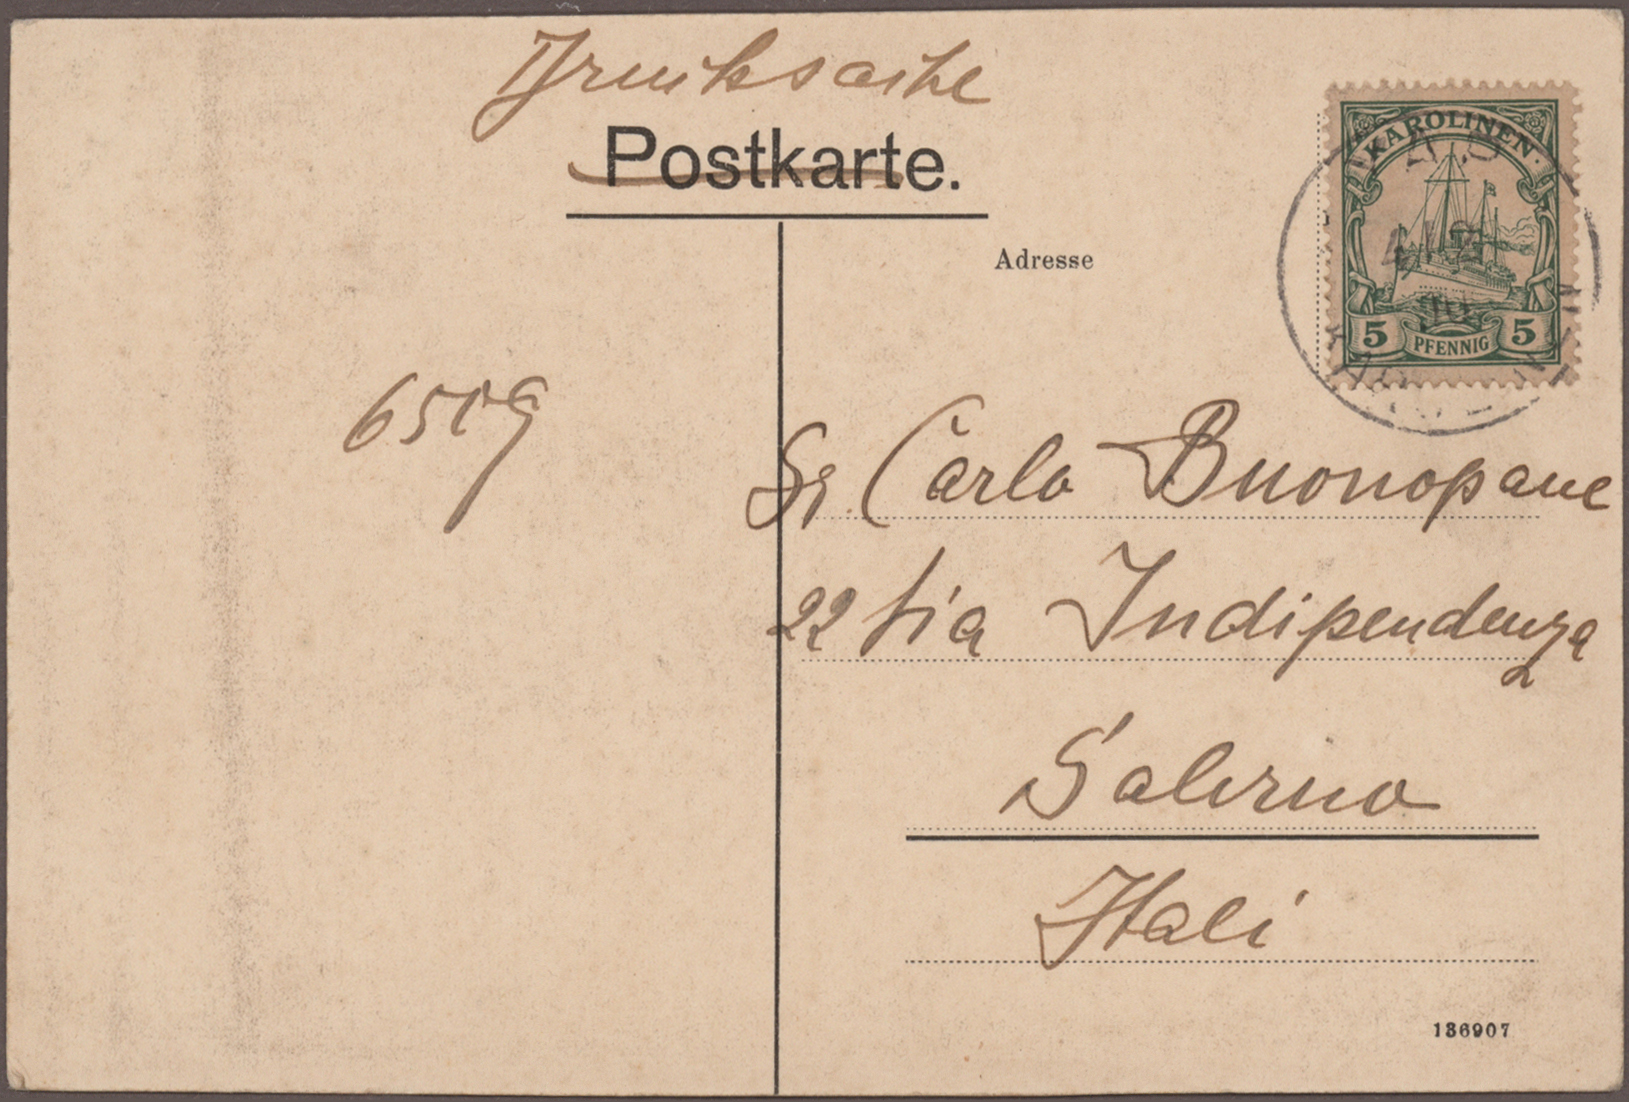 Drucksache
Postkarte.
Adresse
KAROLINEN
4/12
10
5 PFENNIG 5
6509
Sr. Carlo Buonopane
22 Via Indipendenza
Salerno
Itali
136907